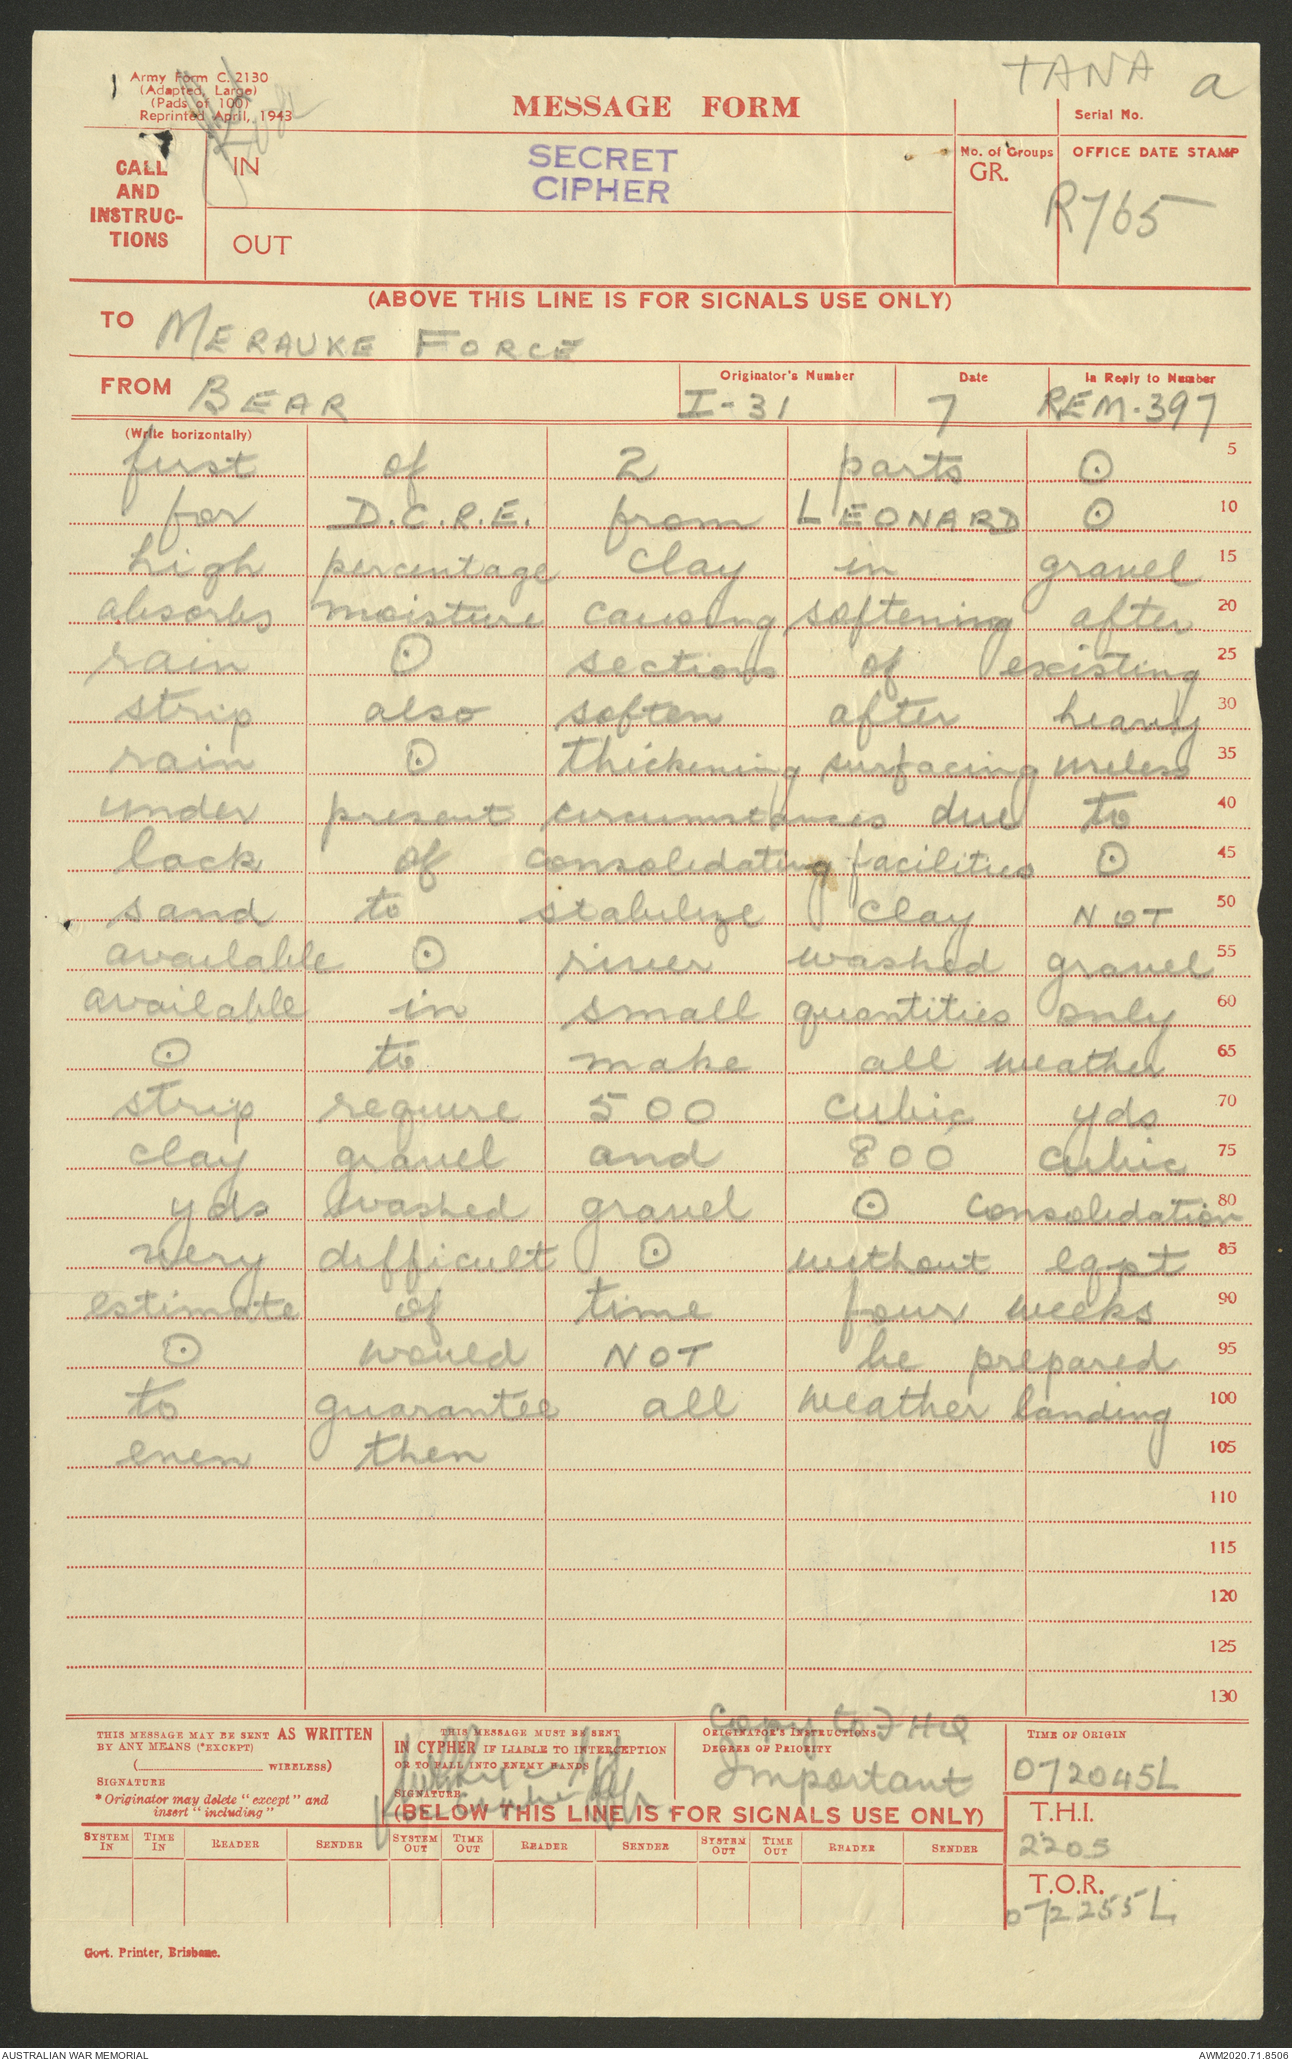 TANA a
Army Form C. 2130
(Adapted, Large)
(Pads of 100)
Reprinted April, 1943
MESSAGE FORM
Serial No.
CALL
AND
INSTRUC-
TIONS
IN
SECRET
CIPHER
No. of Groups
GR.
OFFICE DATE STAMP
R765
OUT
(ABOVE THIS LINE IS FOR SIGNALS USE ONLY)
TO MERAUKE FORCE
FROM BEAR
Originator's Number
I-31
Date
7
In Reply to Number
REM-397
(Write horizontally)
first of 2 parts ⊙ 5
for D.C.R.E. from LEONARD ⊙ 10
high percentage clay in gravel 15
absorbs moisture causing softening after 20
rain ⊙ sections of existing 25
strip also soften after heavy 30
rain ⊙ thickening surfacing useless 35
under present circumstances due to 40
lack of consolidating facilities ⊙ 45
sand to stabilize clay NOT 50
available ⊙ river washed gravel 55
available in small quantities only 60
⊙ to make all weather 65
strip require 500 cubic yds 70
clay gravel and 800 cubic 75
yds washed gravel ⊙ consolidation 80
very difficult ⊙ without eqpt 85
estimate of time four weeks 90
⊙ would NOT be prepared 95
to guarantee all weather landing 100
even then 105
110
115
120
125
130
THIS MESSAGE MAY BE SENT AS WRITTEN
BY ANY MEANS (*EXCEPT)
( WIRELESS)
SIGNATURE
* Originator may delete "except" and
insert "including"
THIS MESSAGE MUST BE SENT
IN CYPHER IF LIABLE TO INTERCEPTION
OR TO FALL INTO ENEMY HANDS
SIGNATURE
Copy to F HQ
ORIGINATOR'S INSTRUCTIONS
DEGREE OF PRIORITY
Important
TIME OF ORIGIN
072045L
(BELOW THIS LINE IS FOR SIGNALS USE ONLY)
T.H.I.
2205
T.O.R.
072255L
SYSTEM IN TIME IN READER SENDER SYSTEM OUT TIME OUT READER SENDER SYSTEM OUT TIME OUT READER SENDER
Govt. Printer, Brisbane.
AUSTRALIAN WAR MEMORIAL
AWM2020.71.8506